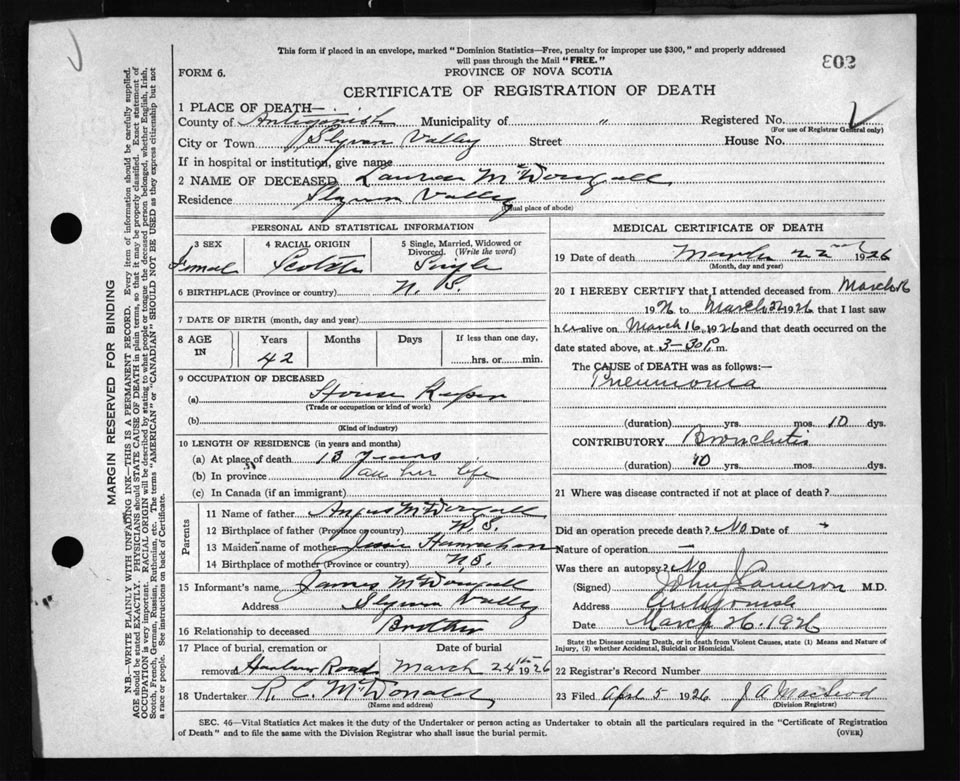 This form if placed in an envelope, marked "Dominion Statistics—Free, penalty for improper use $300," and properly addressed
will pass through the Mail "FREE."
FORM 6.
PROVINCE OF NOVA SCOTIA
303
CERTIFICATE OF REGISTRATION OF DEATH
1 PLACE OF DEATH—
County of Antigonish Municipality of " Registered No.
(For use of Registrar General only)
City or Town Slyvan Valley Street House No.
If in hospital or institution, give name
2 NAME OF DECEASED McDougall
Residence Slyvan Valley
(Usual place of abode)
PERSONAL AND STATISTICAL INFORMATION
3 SEX
Female
4 RACIAL ORIGIN
Scotch
5 Single, Married, Widowed or
Divorced. (Write the word)
Single
6 BIRTHPLACE (Province or country) N. S.
7 DATE OF BIRTH (month, day and year)
8 AGE
IN
Years
42
Months
Days
If less than one day,
hrs. or min.
9 OCCUPATION OF DECEASED
(a) House Keeper
(Trade or occupation or kind of work)
(b)
(Kind of industry)
10 LENGTH OF RESIDENCE (in years and months)
(a) At place of death 13 years
(b) In province all her life
(c) In Canada (if an immigrant)
Parents
11 Name of father Angus McDougall
12 Birthplace of father (Province or country) N. S.
13 Maiden name of mother
14 Birthplace of mother (Province or country) N. S.
15 Informant's name James McDougall
Address Slyvan Valley
16 Relationship to deceased Brother
17 Place of burial, cremation or
removal Harbour Road
Date of burial
March 24th 1926
18 Undertaker R. C. McDonald
(Name and address)
MEDICAL CERTIFICATE OF DEATH
19 Date of death March 22nd 1926
(Month, day and year)
20 I HEREBY CERTIFY that I attended deceased from March 16
1926 to March 22 1926 that I last saw
her alive on March 16, 1926 and that death occurred on
date stated above, at 3-30 P. m.
The CAUSE of DEATH was as follows:—
Pneumonia
(duration) yrs. mos. 10 dys.
CONTRIBUTORY Bronchitis
(duration) 10 yrs. mos. dys.
21 Where was disease contracted if not at place of death?
Did an operation precede death? No Date of
Nature of operation —
Was there an autopsy? No
(Signed) John J Cameron M.D.
Address Antigonish
Date March 26. 1926
State the Disease causing Death, or in death from Violent Causes, state (1) Means and Nature of
Injury, (2) whether Accidental, Suicidal or Homicidal.
22 Registrar's Record Number
23 Filed Apl 5 1926 J. A. MacLeod
(Division Registrar)
SEC. 46—Vital Statistics Act makes it the duty of the Undertaker or person acting as Undertaker to obtain all the particulars required in the "Certificate of Registration
of Death" and to file the same with the Division Registrar who shall issue the burial permit.
(OVER)
MARGIN RESERVED FOR BINDING
N.B.—WRITE PLAINLY WITH UNFADING INK—THIS IS A PERMANENT RECORD. Every item of information should be carefully supplied.
AGE should be stated EXACTLY. PHYSICIANS should STATE CAUSE OF DEATH in plain terms, so that it may be properly classified. Exact statement of
OCCUPATION is very important. RACIAL ORIGIN will be described by stating to what people or tongue the deceased person belonged, whether English, Irish,
Scotch, French, German, Russian, Ruthenian, etc. The terms "AMERICAN" or "CANADIAN" SHOULD NOT BE USED as they express citizenship but not
a race or people. See instructions on back of Certificate.